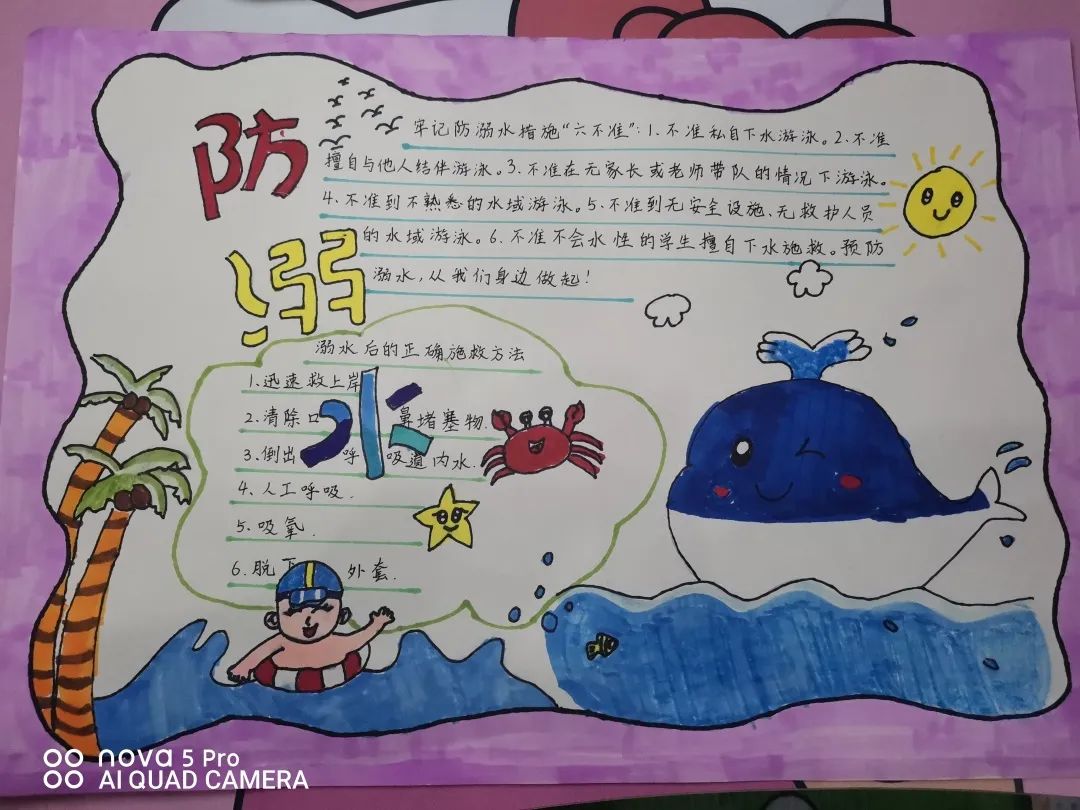 防
溺
水
牢记防溺水措施“六不准”：1.不准私自下水游泳。2.不准
擅自与他人结伴游泳。3.不准在无家长或老师带队的情况下游泳。
4.不准到不熟悉的水域游泳。5.不准到无安全设施、无救护人员
的水域游泳。6.不准不会水性的学生擅自下水施救。预防
溺水，从我们身边做起！
溺水后的正确施救方法
1、迅速救上岸
2.清除口鼻堵塞物.
3、倒出呼吸道内水.
4、人工呼吸.
5.吸氧.
6.脱下外套.
nova 5 Pro
AI QUAD CAMERA